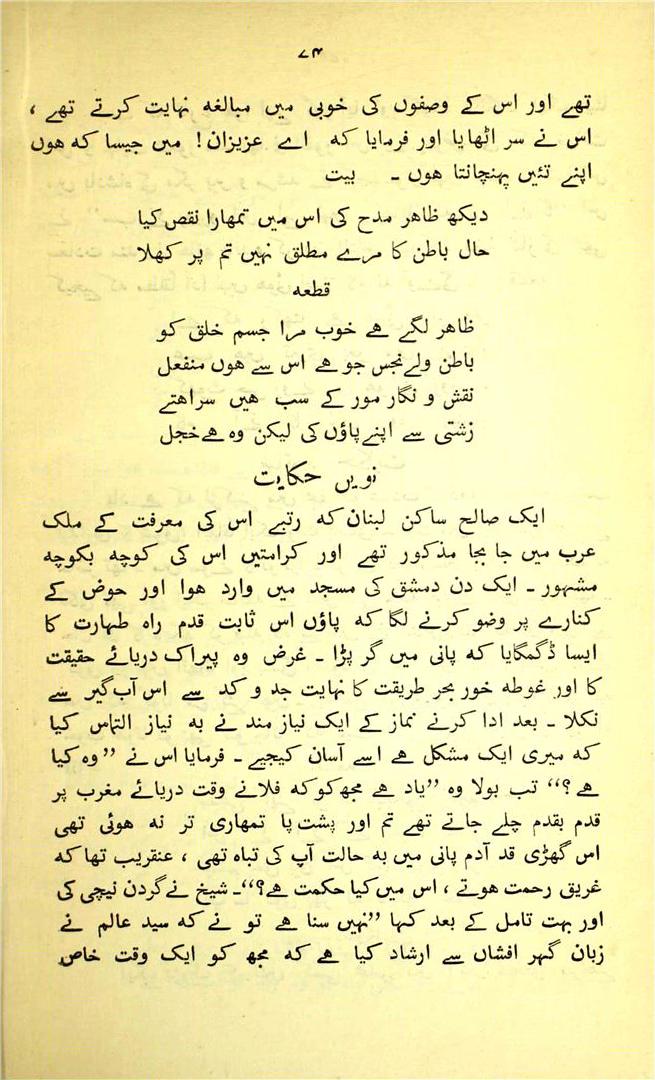 ۷۴
تھے اور اس کے وصفوں کی خوبی میں مبالغہ نہایت کرتے تھے ،
اس نے سر اٹھایا اور فرمایا کہ اے عزیزان ! میں جیسا کہ ہوں
اپنے تئیں پہنچانتا ہوں ۔ بیت
دیکھ ظاہر مدح کی اس میں تمھارا نقص کیا
حال باطن کا مرے مطلق نہیں تم پر کھلا
قطعہ
ظاہر لگے ہے خوب مرا جسم خلق کو
باطن ولے نجس جو ہے اس سے ہوں منفعل
نقش و نگار مور کے سب ہیں سراہتے
زشتی سے اپنے پاؤں کی لیکن وہ ہے خجل
نویں حکایت
ایک صالح ساکن لبنان کہ رتبے اس کی معرفت کے ملک
عرب میں جا بجا مذکور تھے اور کرامتیں اس کی کوچہ بکوچہ
مشہور ۔ ایک دن دمشق کی مسجد میں وارد ہوا اور حوض کے
کنارے پر وضو کرنے لگا کہ پاؤں اس ثابت قدم راہ طہارت کا
ایسا ڈگمگایا کہ پانی میں گر پڑا ۔ غرض وہ پیراک دریائے حقیقت
کا اور غوطہ خور بحر طریقت کا نہایت جد و کد سے اس آب گیر سے
نکلا ۔ بعد ادا کرنے نماز کے ایک نیاز مند نے بہ نیاز التماس کیا
کہ میری ایک مشکل ہے اسے آسان کیجیے ۔ فرمایا اس نے ”وہ کیا
ہے ؟“ تب بولا وہ ”یاد ہے مجھ کو کہ فلانے وقت دریائے مغرب پر
قدم بقدم چلے جاتے تھے تم اور پشت پا تمھاری تر نہ ہوئی تھی
اس گھڑی قد آدم پانی میں بہ حالت آپ کی تباہ تھی ، عنقریب تھا کہ
غریق رحمت ہوتے ، اس میں کیا حکمت ہے ؟“۔ شیخ نے گردن نیچی کی
اور بہت تامل کے بعد کہا ”نہیں سنا ہے تو نے کہ سید عالم نے
زبان گہر افشاں سے ارشاد کیا ہے کہ مجھ کو ایک وقت خاص